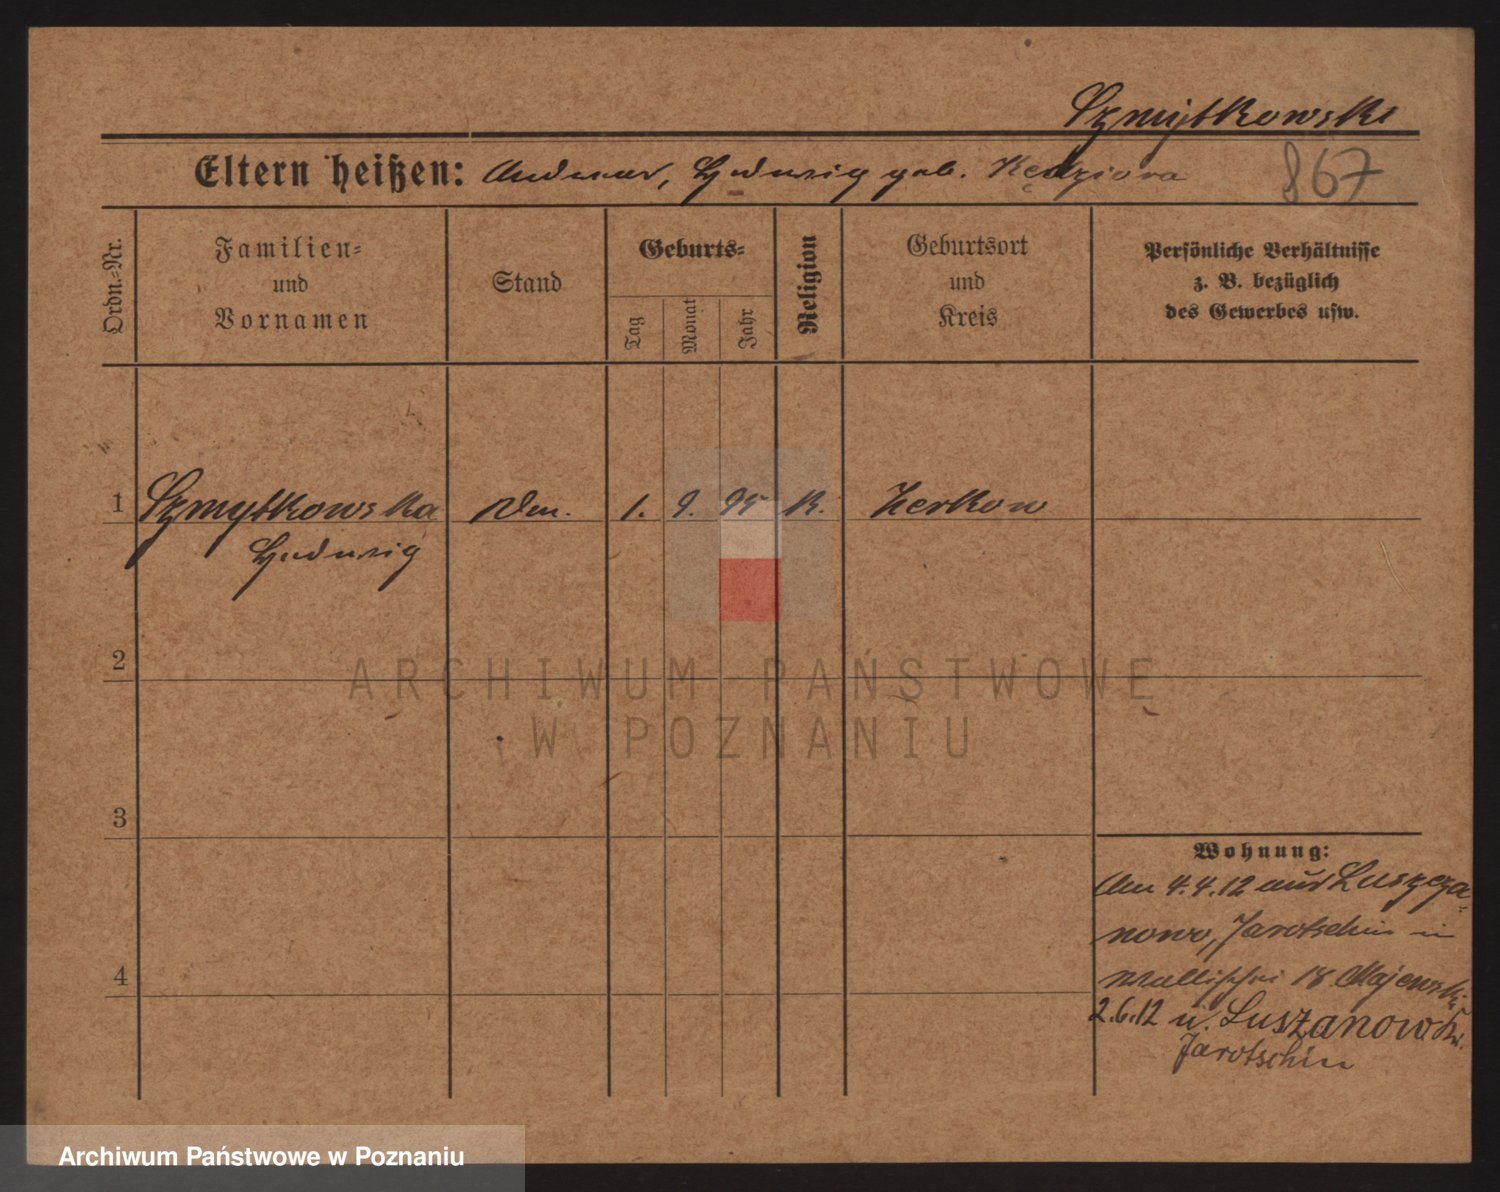 Szmytkowski
Eltern heißen: Andreas, Hedwig geb. Kędziora
867
Ordn.-Nr.
Familien-
und
Vornamen
Stand
Geburts-
Tag
Monat
Jahr
Religion
Geburtsort
und
Kreis
Persönliche Verhältnisse
z. B. bezüglich
des Gewerbes usw.
1 Szmytkowska 1. 9. 95 K. Zerkow
Hedwig
2
3
4
Wohnung:
Am 4.4.12 aus Luszcza-
nowo, Jarotschin in
Wallischei 18 Majewski
2.6.12 n. Luszanowo Kr.
Jarotschin
ARCHIWUM PAŃSTWOWE
W POZNANIU
Archiwum Państwowe w Poznaniu